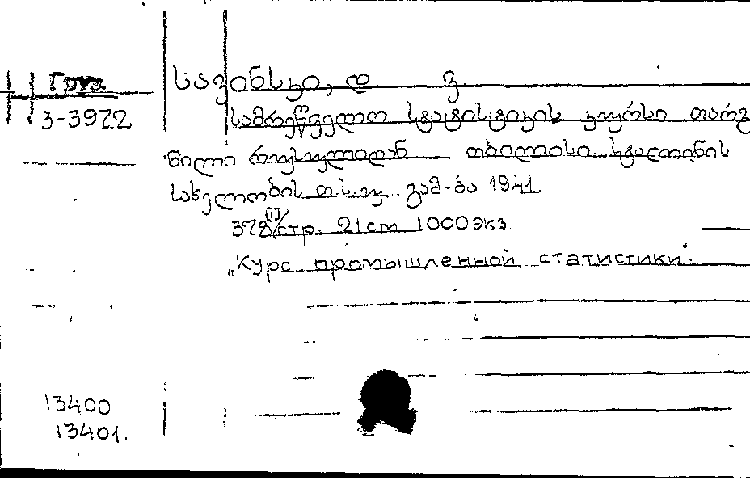 სავინსკი, დ ვ.
3-3922
სამრეწველო სტატისტიკის კურსი თარგ
ნილი რუსულიდან თბილისი სტალინის
სახელობის თ.ს.უ. გამ-ბა 1941
378 стр. 21 cm 1000 экз.
„Курс промышленной статистики".
13400
13401.